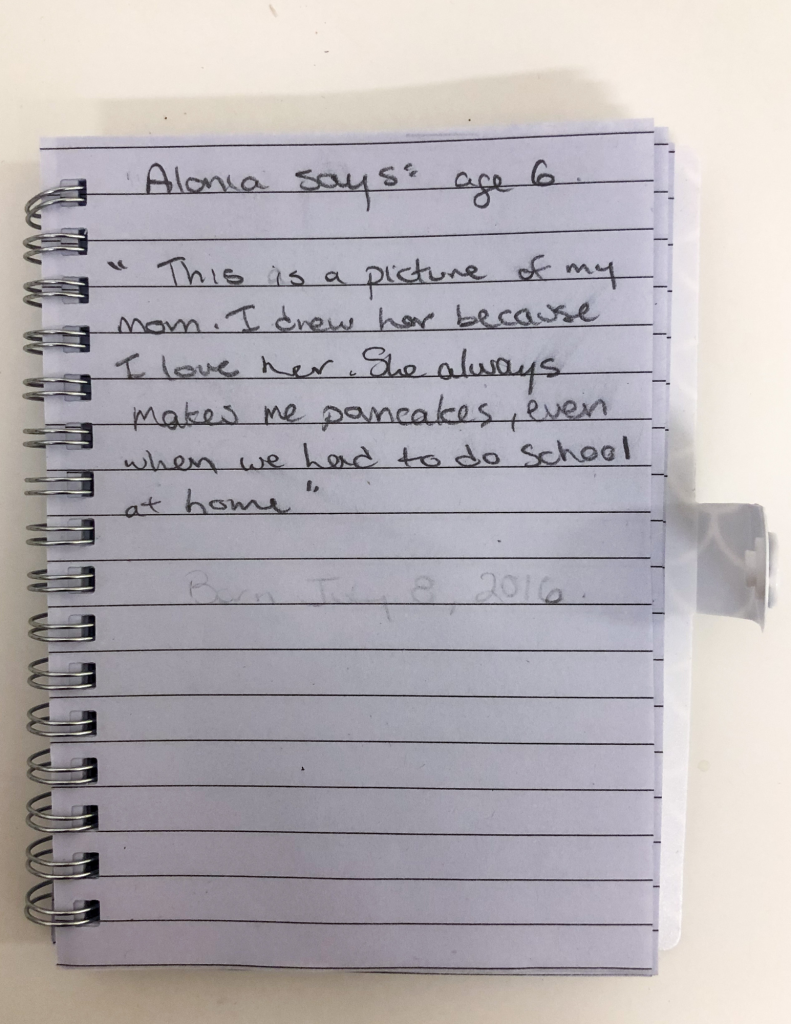 Alonia says: age 6.
"This is a picture of my
mom. I drew her because
I love her. She always
makes me pancakes, even
when we had to do school
at home"
Born July 8, 2016.